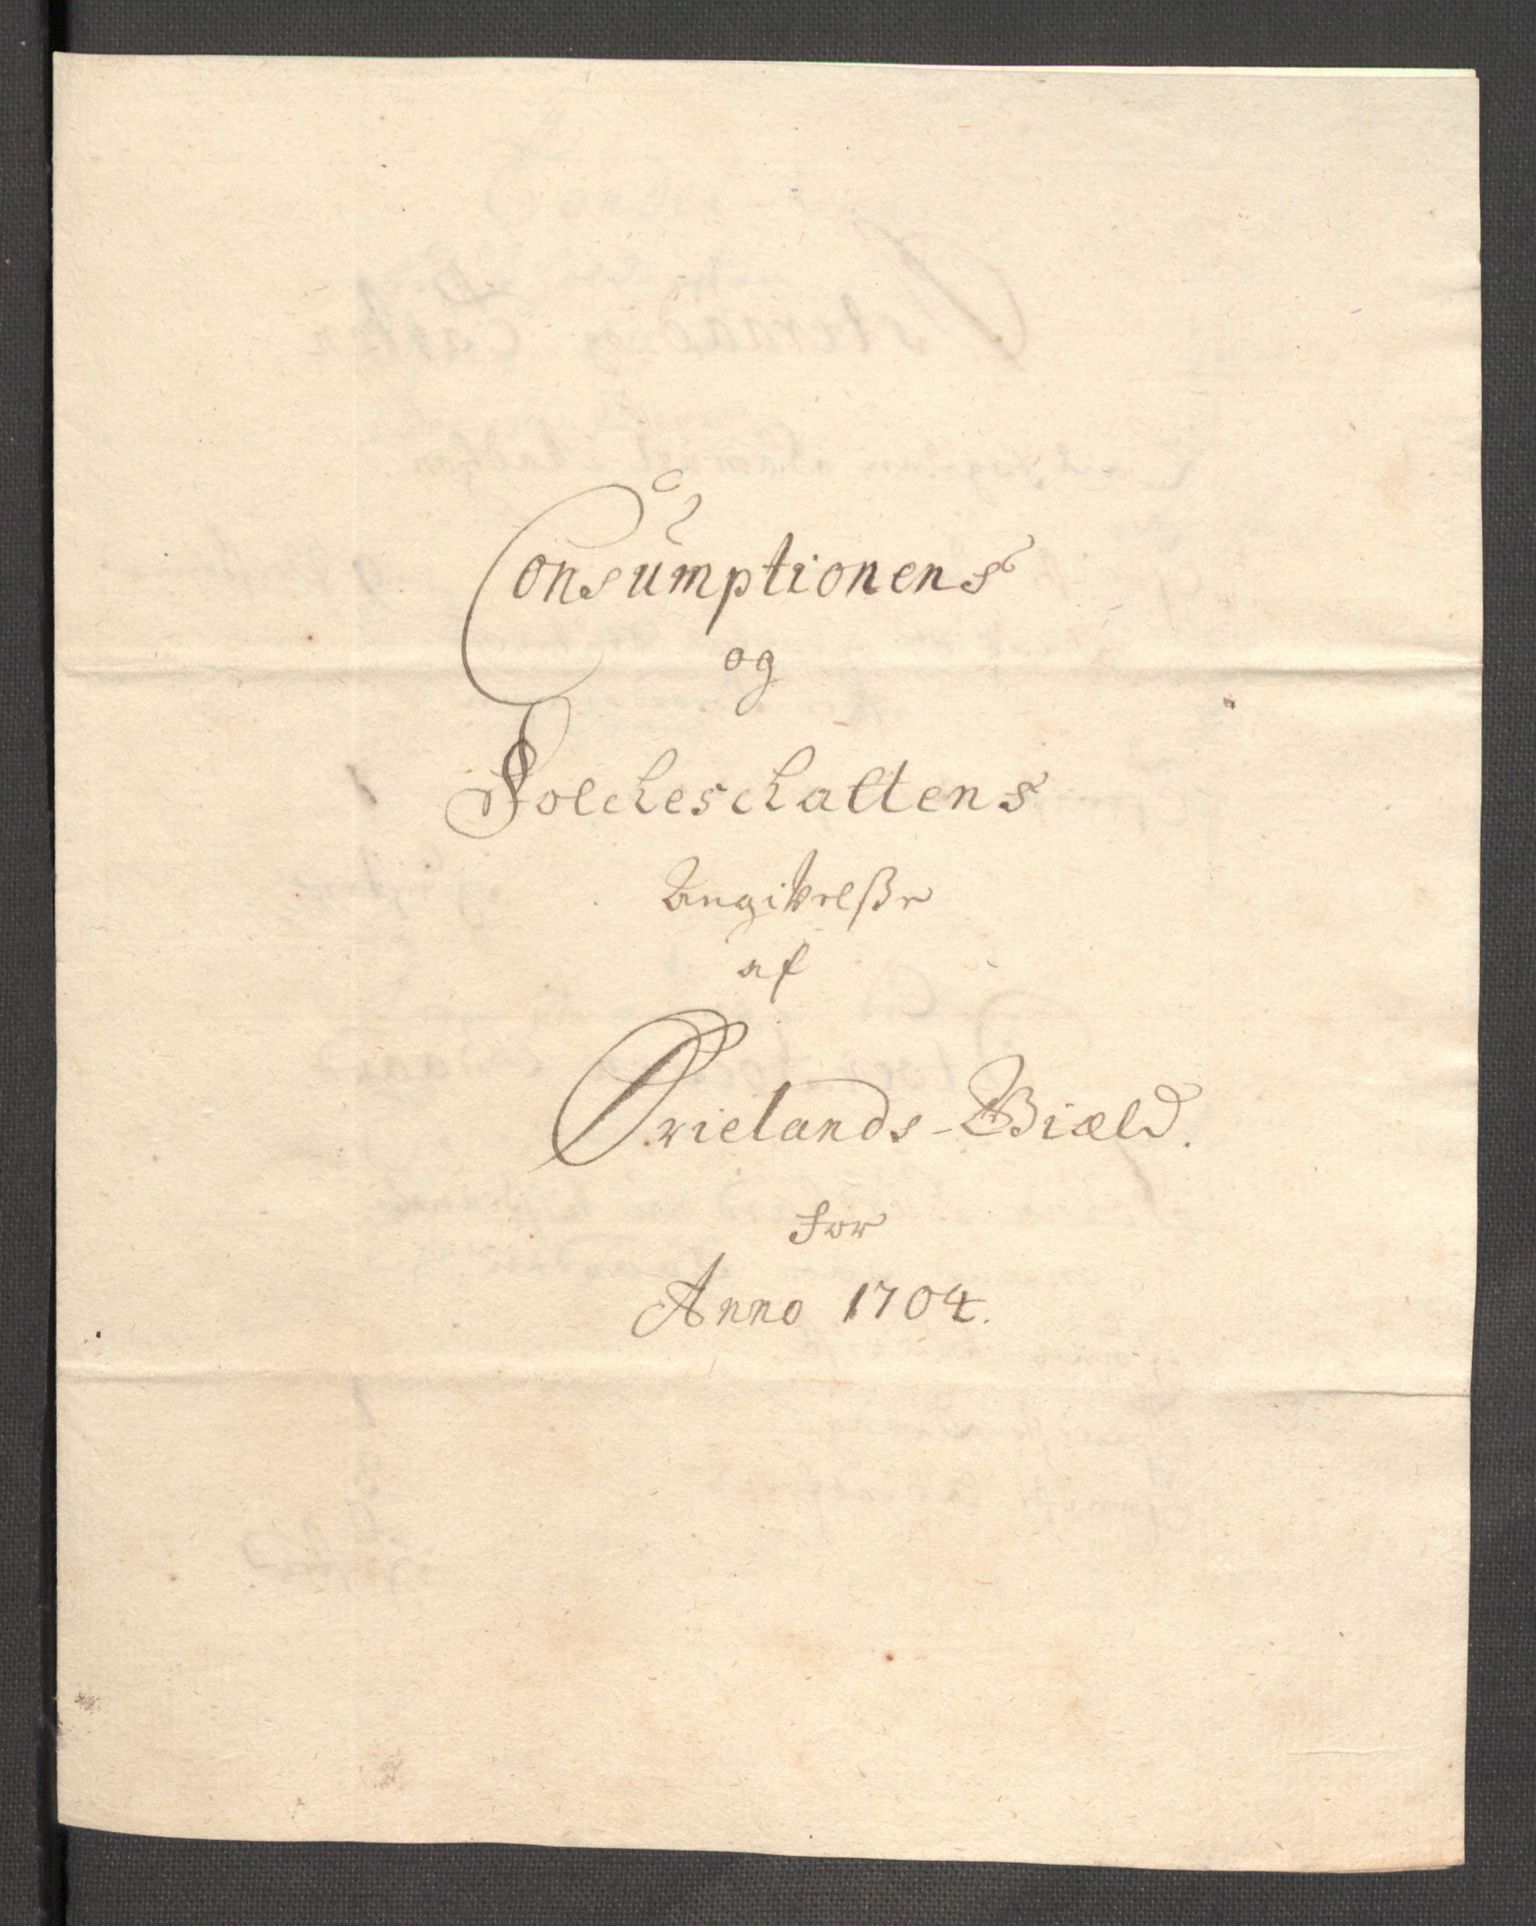 Consumptionens
og
Folcheschattens
Angivelße
af
Ørielands-Giæld.
for
Anno 1704.